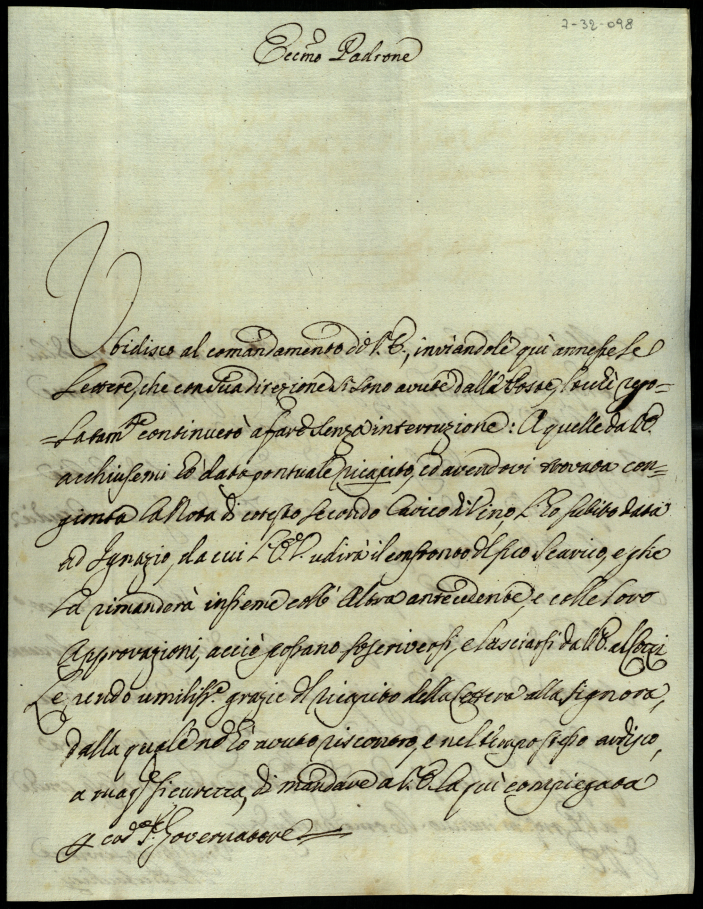 2-32-098
Eccmo Padrone
Vbidisco al comandamento di V.E., inviandole quì annesse le
Lettere, che con Sua direzione si sono avute dalla Posta, lo che repo-
=satam.e continuerò a fare senza interruzione: A quelle da V.E.
acchiusemi hò dato pontuale ricapito, ed avendovi trovata con=
gionta la Nota di cotesto secondo Carico di Vino l'hò subito data
ad Ignazio, da cui l'E.V. udirà il confronto del suo Scarico, e che
La rimanderà insieme coll' Altra antecedente, e colle loro
Approvazioni, acciò possano soscriversi, e lasciarsi da V.E. al
Le rendo umiliss.e grazie del ricapito della Lettera alla Signora,
dalla quale ne hò avuto riscontro, e nel tempo stesso ardisco,
a magg. sicurezza, di mandare a V.E. la quì compiegata
p cod.o S.r Governatore